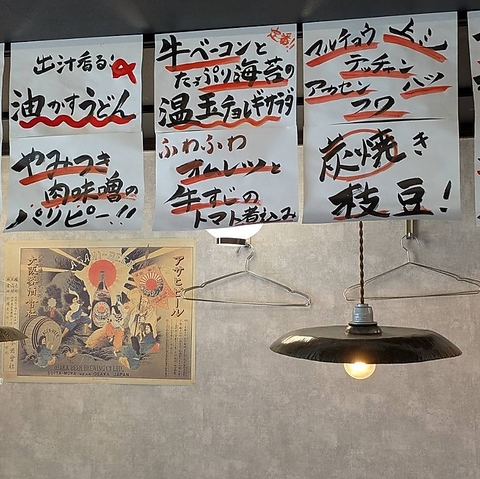 出汁香る!
油かすうどん
やみつき
肉味噌の
パリピー!!
定番!
牛ベーコンと
たっぷり海苔の
温玉チョレギサラダ
ふわふわ
オムレツと
牛すじの
トマト煮込み
マルチョウ
テッチャン
アカセン ハツ
コワ
炭焼き
枝豆!
アサヒビール
OSAKA BEER BREWING COMPANY
SUITA MURA OSAKA JAPAN